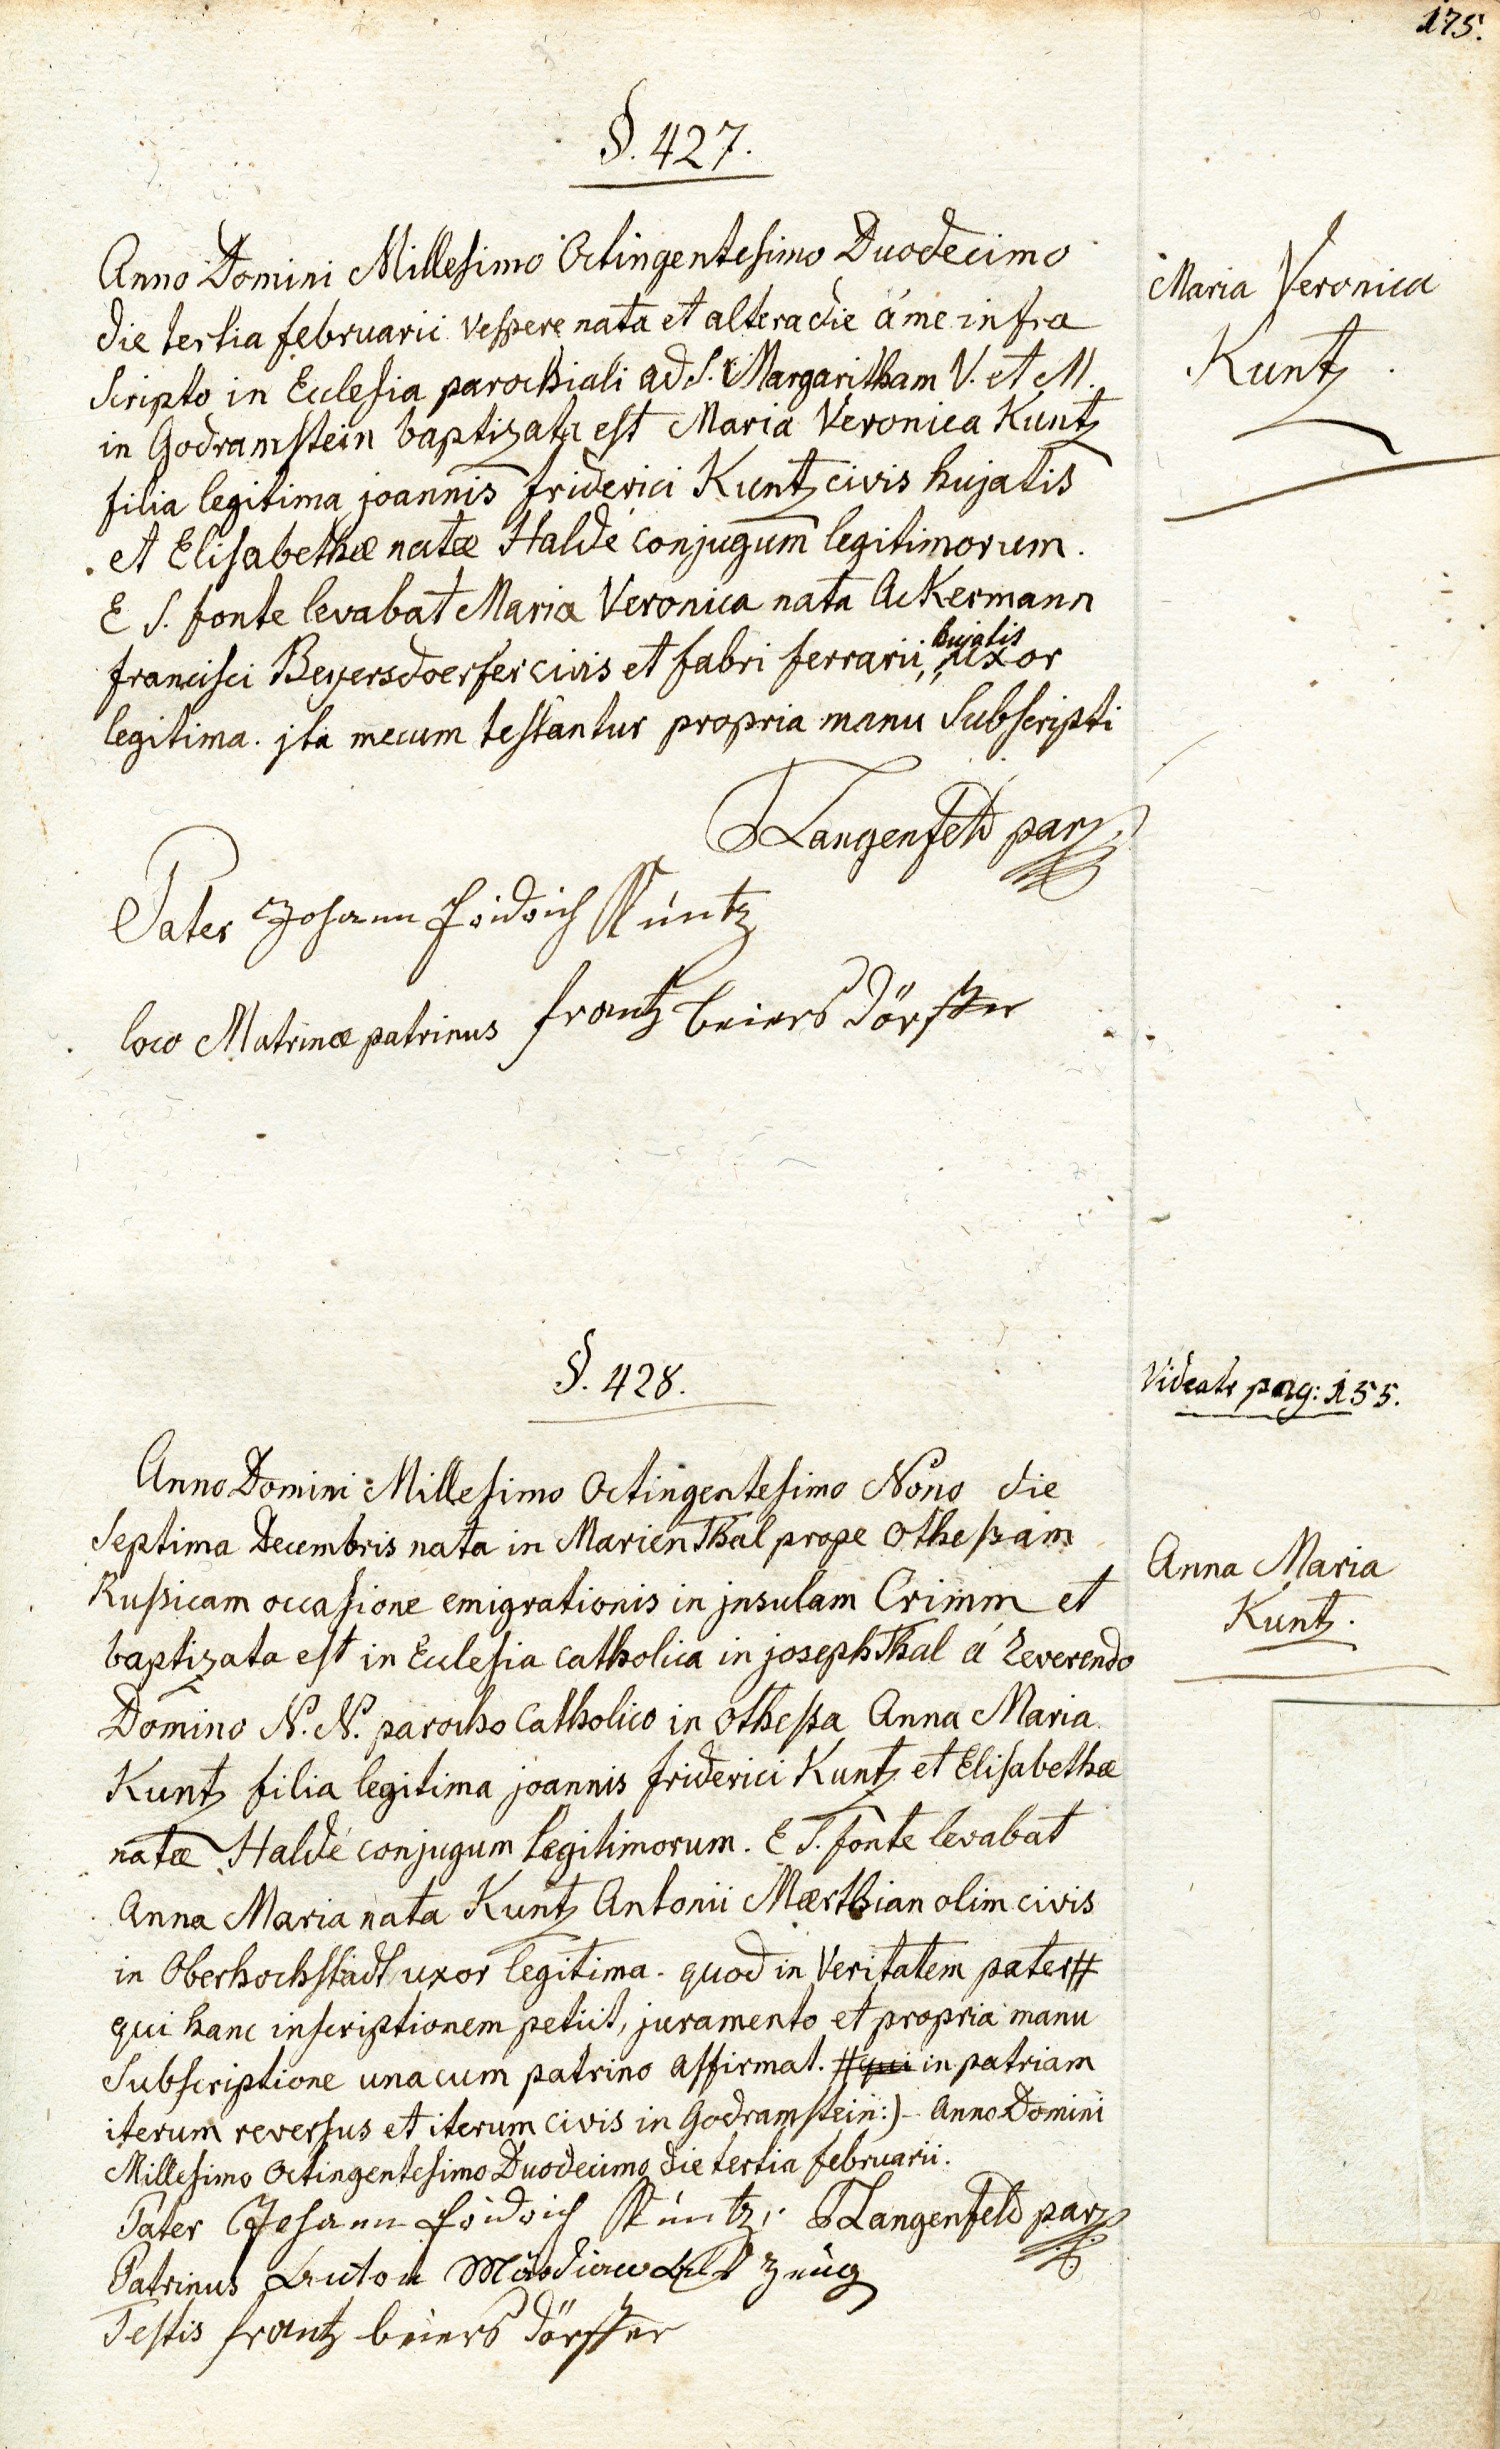 175.
§. 427.
Anno Domini Millesimo Octingentesimo Duodecimo
die tertia februarii vespere nata et altera die á me infra
scripto in Ecclesia parochiali ad S. Margaritham V. et M.
in Godramstein baptizata est Maria Veronica Kuntz
filia legitima joannis friderici Kuntz civis hujatis
et Elisabethæ natæ Haldé conjugum legitimorum.
E S. fonte levabat Maria Veronica nata Ackermann
francisci Beyersdoerfer civis et fabri ferrarii, hujatis uxor
legitima. jta mecum testantur propria manu Subscripti
Maria Veronica
Kuntz.
Langenfeld par
Pater Johann fridrich Kúntz
loco Matrinæ patrinus frantz beiersdörffer
§. 428.
Videatr pag: 155.
Anno Domini Millesimo Octingentesimo Nono die
Septima Decembris nata in Marienthal prope Otheßam
Rußicam occasione emigrationis in jnsulam Crimm et
baptizata est in Ecclesia Catholica in josephthal á Reverendo
Domino N. N. parocho Catholico in Otheßa Anna Maria
Kuntz filia legitima joannis friderici Kuntz et Elisabethæ
natæ Haldé conjugum legitimorum. E S. fonte levabat
Anna Maria nata Kuntz Antonii Mærthian olim civis
in Oberhochstadt uxor legitima. quod in Veritatem pater #
qui hanc inscriptionem petiit, juramento et propria manu
Subscriptione una cum patrino affirmat. # qui in patriam
iterum reversus et iterum civis in Godramstein:) - Anno Domini
Millesimo Octingentesimo Duodecimo die tertia februarii.
Anna Maria
Kuntz.
Pater Johann fridrich Kúntz, Langenfeld par
Patrinus Anton zeúg
Testis frantz beiersdörffer